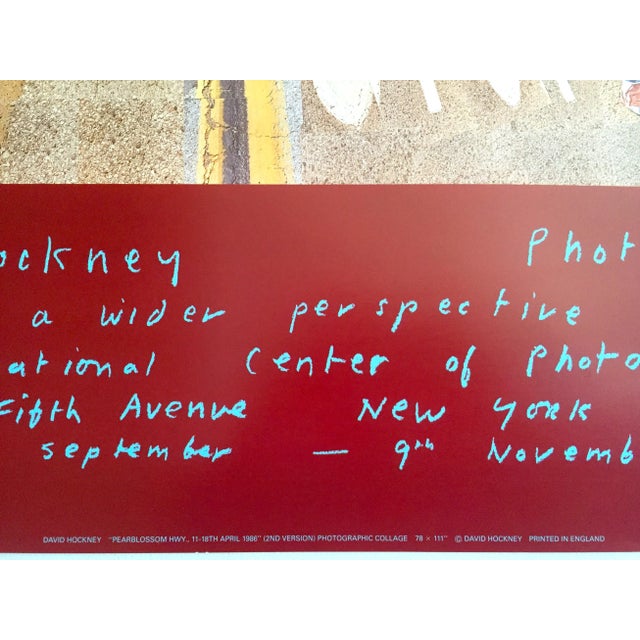 ockney Phot
a wider perspective
ational Center of Photo
Fifth Avenue New York
september — 9th Novemb
DAVID HOCKNEY "PEARBLOSSOM HWY., 11-18TH APRIL 1986" (2ND VERSION) PHOTOGRAPHIC COLLAGE 78 × 111" © DAVID HOCKNEY PRINTED IN ENGLAND